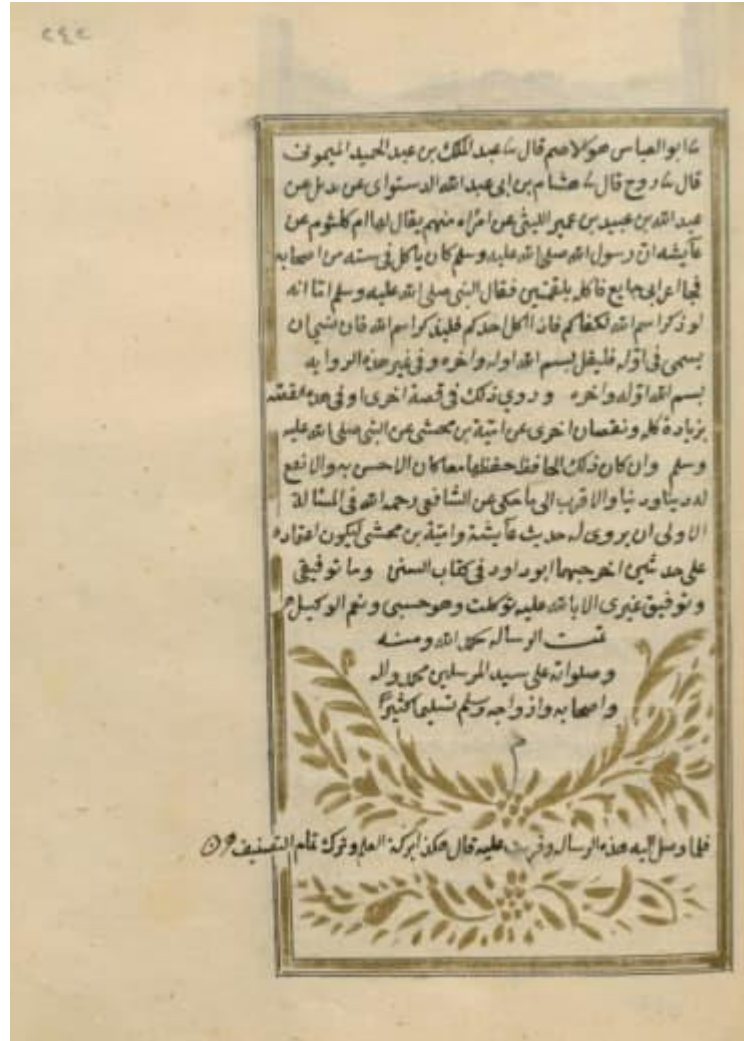 ٢٤٢
ثنا ابو العباس هو الاصم قال ثنا عبد الملك بن عبد الحميد الميمونى
قال ثنا روح قال ثنا هشام بن ابى عبد الله الدستواى عن بديل عن
عبد الله بن عبيد بن عمير الليثى عن امراه منهم يقال لها ام كلثوم عن
عايشه ان رسول الله صلى الله عليه وسلم كان ياكل فى سته من اصحابه
فجا اعرابى جايع فاكله بلقمتين فقال النبى صلى الله عليه وسلم اما انه
لو ذكر اسم الله لكفاكم فاذا اكل احدكم فليذكر اسم الله فان نسى ان
يسمى فى اوله فليقل بسم الله اوله واخره وفى غير هذه الروايه
بسم الله اوله واخره وروي ذلك فى قصة اخرى او فى هذه القصه
بزيادة كله ونقصان اخرى عن امية بن مخشى عن النبى صلى الله عليه
وسلم وان كان ذلك الحافظ حفظها معا كان الاحسن به والانفع
له دينا ودنيا والاقرب الى ما حكى عن الشافعى رحمه الله فى المسالة
الاولى ان يروى له حديث عايشة وامية بن مخشى ليكون اعتماده
على حديثين اخرجهما ابو داود فى كتاب السنن وما توفيقى
وتوفيق غيرى الا بالله عليه توكلت وهو حسبى ونعم الوكيل
تمت الرساله بحمد الله ومنه
وصلواته على سيد المرسلين محمد واله
واصحابه وازواجه وسلم تسليما كثيرًا
م
فلما وصل اليه هذه الرساله وقريت عليه قال هكذا بركة العلم وترك تمام التصنيف